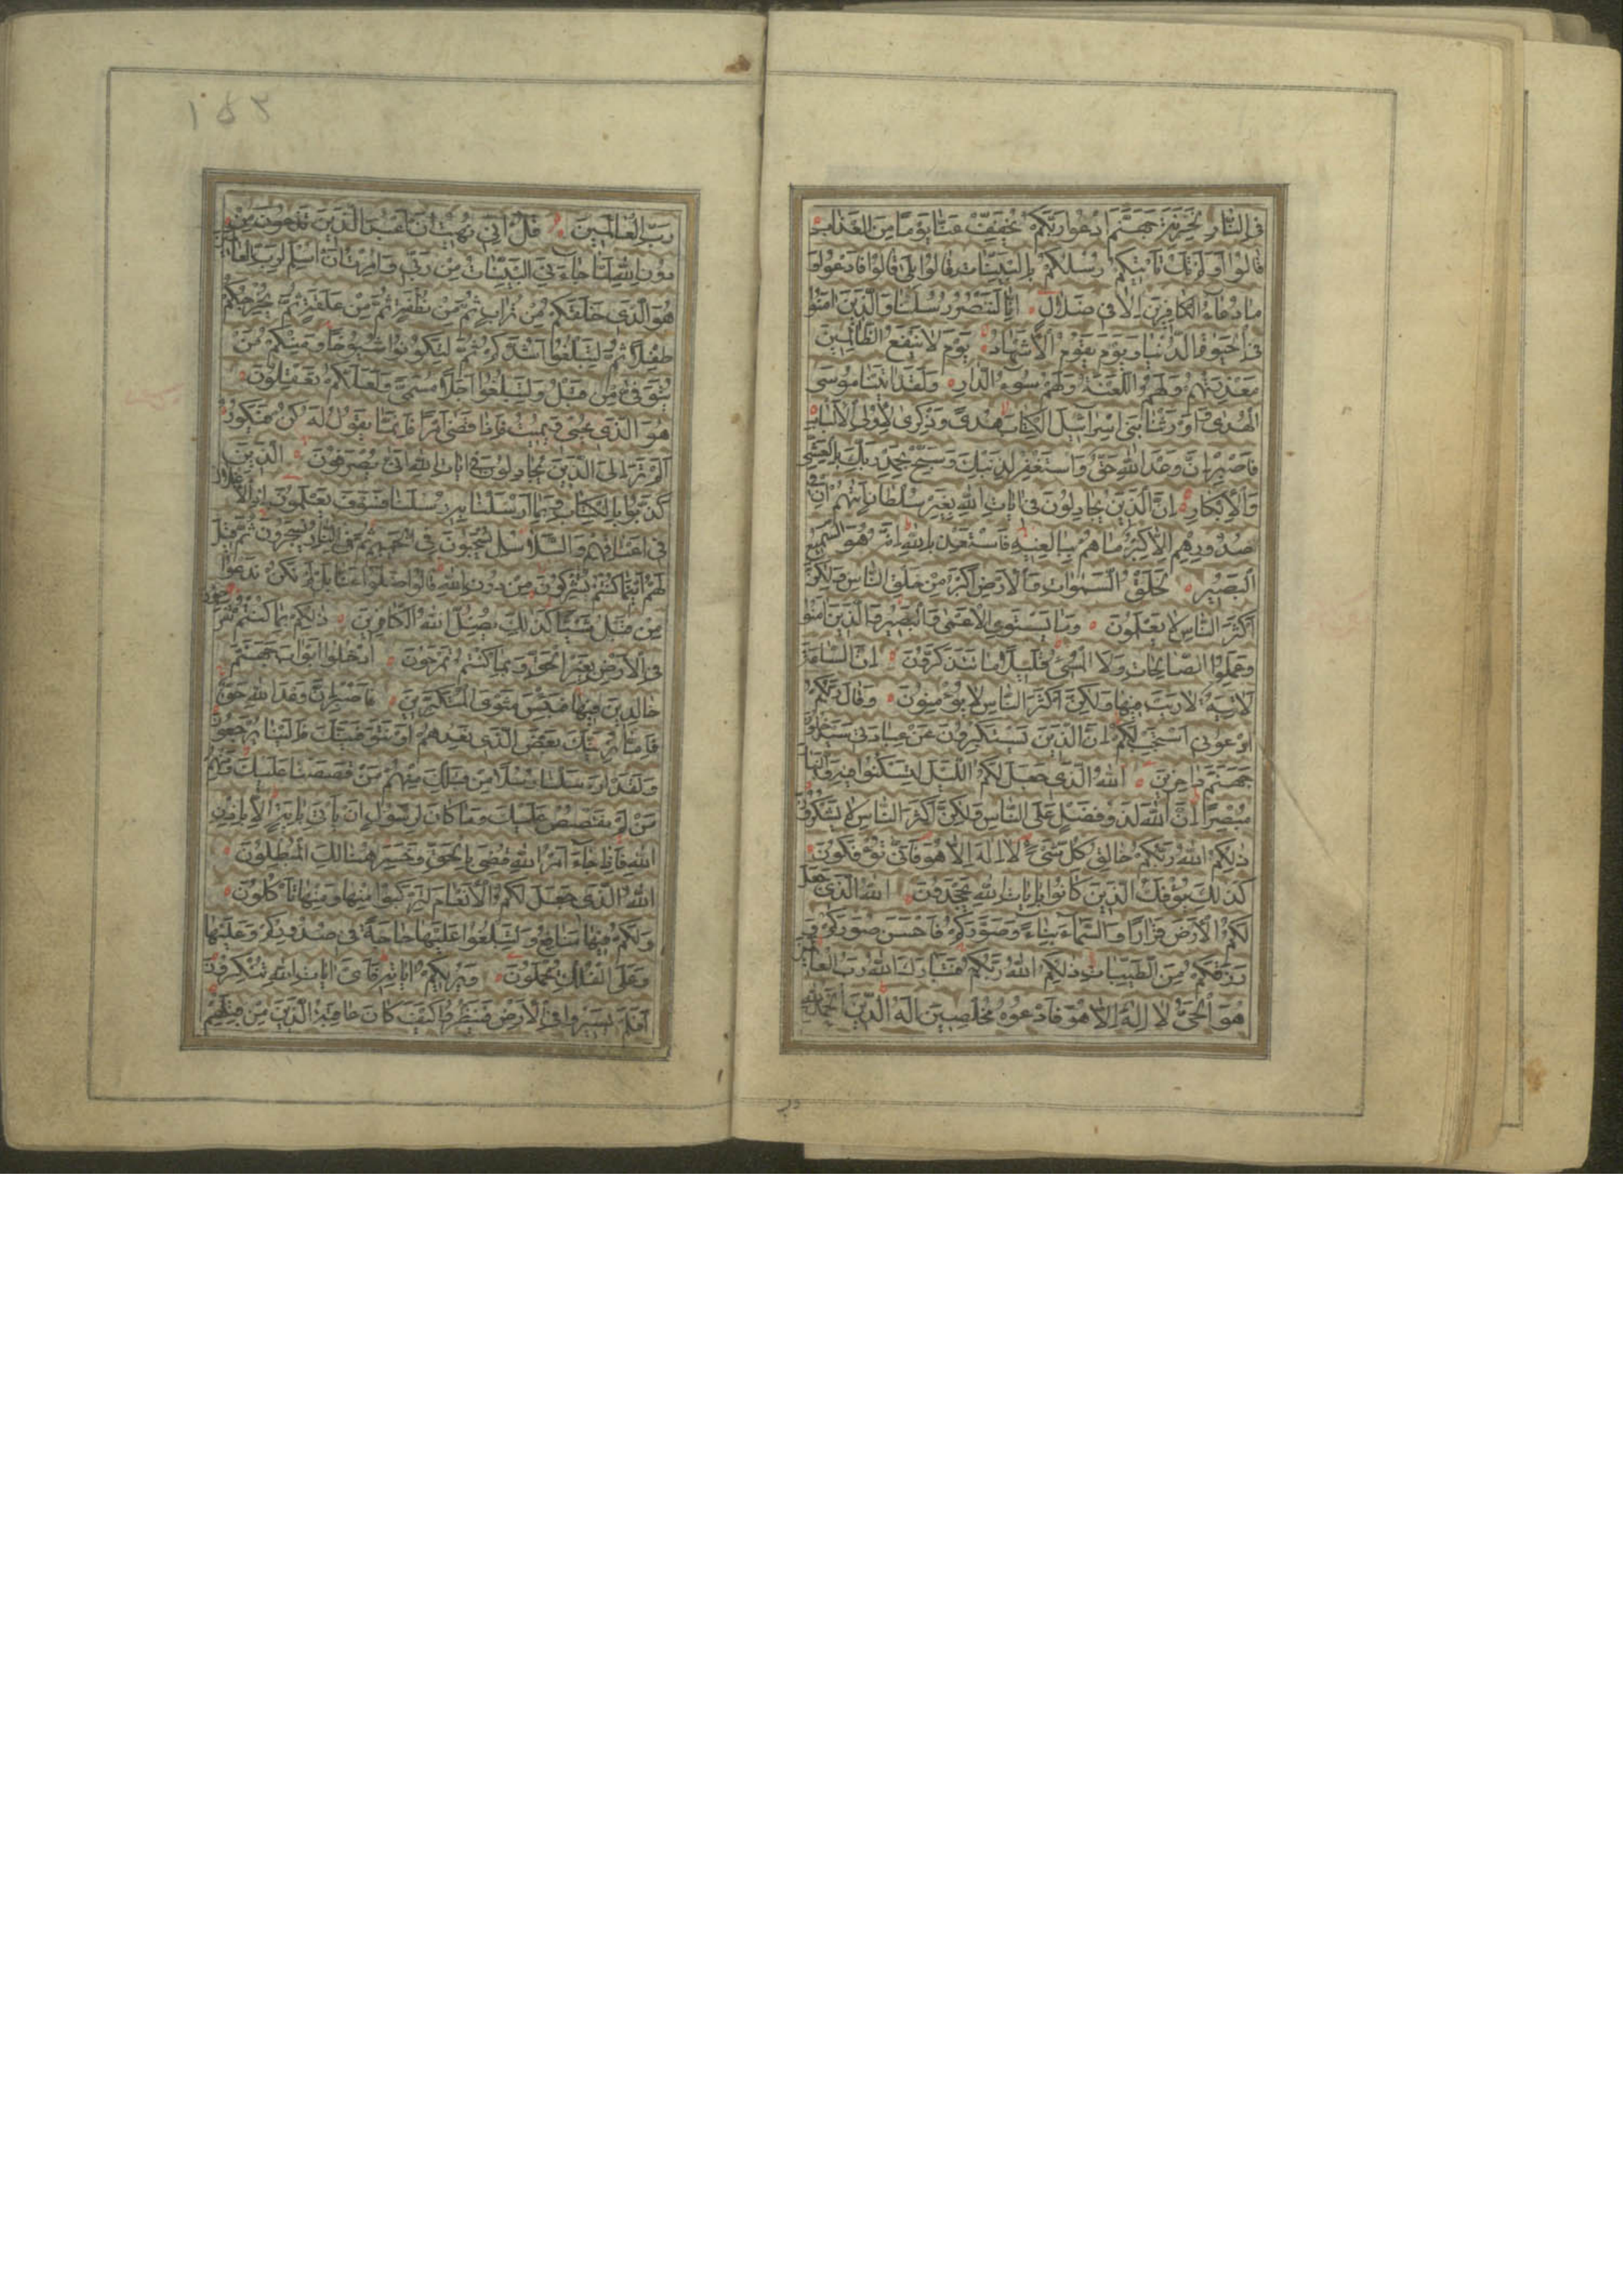 فِي النَّارِ لِخَزَنَةِ جَهَنَّمَ ادْعُوا رَبَّكُمْ يُخَفِّفْ عَنَّا يَوْمًا مِنَ الْعَذَابِ
قَالُوا أَوَلَمْ تَكُ تَأْتِيكُمْ رُسُلُكُمْ بِالْبَيِّنَاتِ قَالُوا بَلَى قَالُوا فَادْعُوا وَ
مَا دُعَاءُ الْكَافِرِينَ إِلَّا فِي ضَلَالٍ إِنَّا لَنَنْصُرُ رُسُلَنَا وَالَّذِينَ آمَنُوا
فِي الْحَيٰوةِ الدُّنْيَا وَيَوْمَ يَقُومُ الْأَشْهَادُ يَوْمَ لَا يَنْفَعُ الظَّالِمِينَ
مَعْذِرَتُهُمْ وَلَهُمُ اللَّعْنَةُ وَلَهُمْ سُوءُ الدَّارِ وَلَقَدْ آتَيْنَا مُوسَى
الْهُدَى وَأَوْرَثْنَا بَنِي إِسْرَائِيلَ الْكِتَابَ هُدًى وَذِكْرَى لِأُولِي الْأَلْبَابِ
فَاصْبِرْ إِنَّ وَعْدَ اللَّهِ حَقٌّ وَاسْتَغْفِرْ لِذَنْبِكَ وَسَبِّحْ بِحَمْدِ رَبِّكَ بِالْعَشِيِّ
وَالْإِبْكَارِ إِنَّ الَّذِينَ يُجَادِلُونَ فِي آيَاتِ اللَّهِ بِغَيْرِ سُلْطَانٍ أَتٰهُمْ إِنْ فِي
صُدُورِهِمْ إِلَّا كِبْرٌ مَا هُمْ بِبَالِغِيهِ فَاسْتَعِذْ بِاللَّهِ إِنَّهُ هُوَ السَّمِيعُ
الْبَصِيرُ لَخَلْقُ السَّمٰوَاتِ وَالْأَرْضِ أَكْبَرُ مِنْ خَلْقِ النَّاسِ وَلَكِنَّ
أَكْثَرَ النَّاسِ لَا يَعْلَمُونَ وَمَا يَسْتَوِي الْأَعْمَى وَالْبَصِيرُ وَالَّذِينَ آمَنُوا
وَعَمِلُوا الصَّالِحَاتِ وَلَا الْمُسِيءُ قَلِيلًا مَا تَتَذَكَّرُونَ إِنَّ السَّاعَةَ
لَآتِيَةٌ لَا رَيْبَ فِيهَا وَلَكِنَّ أَكْثَرَ النَّاسِ لَا يُؤْمِنُونَ وَقَالَ رَبُّكُمُ
ادْعُونِي أَسْتَجِبْ لَكُمْ إِنَّ الَّذِينَ يَسْتَكْبِرُونَ عَنْ عِبَادَتِي سَيَدْخُلُونَ
جَهَنَّمَ دَاخِرِينَ اللَّهُ الَّذِي جَعَلَ لَكُمُ اللَّيْلَ لِتَسْكُنُوا فِيهِ وَالنَّهَارَ
مُبْصِرًا إِنَّ اللَّهَ لَذُو فَضْلٍ عَلَى النَّاسِ وَلَكِنَّ أَكْثَرَ النَّاسِ لَا يَشْكُرُونَ
ذَلِكُمُ اللَّهُ رَبُّكُمْ خَالِقُ كُلِّ شَيْءٍ لَا إِلَهَ إِلَّا هُوَ فَأَنَّى تُؤْفَكُونَ
كَذَلِكَ يُؤْفَكُ الَّذِينَ كَانُوا بِآيَاتِ اللَّهِ يَجْحَدُونَ اللَّهُ الَّذِي جَعَلَ
لَكُمُ الْأَرْضَ قَرَارًا وَالسَّمَاءَ بِنَاءً وَصَوَّرَكُمْ فَأَحْسَنَ صُوَرَكُمْ وَ
رَزَقَكُمْ مِنَ الطَّيِّبَاتِ ذَلِكُمُ اللَّهُ رَبُّكُمْ فَتَبَارَكَ اللَّهُ رَبُّ الْعَالَمِينَ
هُوَ الْحَيُّ لَا إِلَهَ إِلَّا هُوَ فَادْعُوهُ مُخْلِصِينَ لَهُ الدِّينَ الْحَمْدُ لِلَّهِ
١٥٣
رَبِّ الْعَالَمِينَ قُلْ إِنِّي نُهِيتُ أَنْ أَعْبُدَ الَّذِينَ تَدْعُونَ مِنْ
دُونِ اللَّهِ لَمَّا جَاءَنِيَ الْبَيِّنَاتُ مِنْ رَبِّي وَأُمِرْتُ أَنْ أُسْلِمَ لِرَبِّ الْعَالَمِينَ
هُوَ الَّذِي خَلَقَكُمْ مِنْ تُرَابٍ ثُمَّ مِنْ نُطْفَةٍ ثُمَّ مِنْ عَلَقَةٍ ثُمَّ يُخْرِجُكُمْ
طِفْلًا ثُمَّ لِتَبْلُغُوا أَشُدَّكُمْ ثُمَّ لِتَكُونُوا شُيُوخًا وَمِنْكُمْ مَنْ
يُتَوَفَّى مِنْ قَبْلُ وَلِتَبْلُغُوا أَجَلًا مُسَمًّى وَلَعَلَّكُمْ تَعْقِلُونَ
هُوَ الَّذِي يُحْيِي وَيُمِيتُ فَإِذَا قَضَى أَمْرًا فَإِنَّمَا يَقُولُ لَهُ كُنْ فَيَكُونُ
أَلَمْ تَرَ إِلَى الَّذِينَ يُجَادِلُونَ فِي آيَاتِ اللَّهِ أَنَّى يُصْرَفُونَ الَّذِينَ
كَذَّبُوا بِالْكِتَابِ وَبِمَا أَرْسَلْنَا بِهِ رُسُلَنَا فَسَوْفَ يَعْلَمُونَ إِذِ الْأَغْلَالُ
فِي أَعْنَاقِهِمْ وَالسَّلَاسِلُ يُسْحَبُونَ فِي الْحَمِيمِ ثُمَّ فِي النَّارِ يُسْجَرُونَ ثُمَّ قِيلَ
لَهُمْ أَيْنَمَا كُنْتُمْ تُشْرِكُونَ مِنْ دُونِ اللَّهِ قَالُوا ضَلُّوا عَنَّا بَلْ لَمْ نَكُنْ نَدْعُوا
مِنْ قَبْلُ شَيْئًا كَذَلِكَ يُضِلُّ اللَّهُ الْكَافِرِينَ ذَلِكُمْ بِمَا كُنْتُمْ تَفْرَحُونَ
فِي الْأَرْضِ بِغَيْرِ الْحَقِّ وَبِمَا كُنْتُمْ تَمْرَحُونَ ادْخُلُوا أَبْوَابَ جَهَنَّمَ
خَالِدِينَ فِيهَا فَبِئْسَ مَثْوَى الْمُتَكَبِّرِينَ فَاصْبِرْ إِنَّ وَعْدَ اللَّهِ حَقٌّ
فَإِمَّا نُرِيَنَّكَ بَعْضَ الَّذِي نَعِدُهُمْ أَوْ نَتَوَفَّيَنَّكَ فَإِلَيْنَا يُرْجَعُونَ
وَلَقَدْ أَرْسَلْنَا رُسُلًا مِنْ قَبْلِكَ مِنْهُمْ مَنْ قَصَصْنَا عَلَيْكَ وَمِنْهُمْ
مَنْ لَمْ نَقْصُصْ عَلَيْكَ وَمَا كَانَ لِرَسُولٍ أَنْ يَأْتِيَ بِآيَةٍ إِلَّا بِإِذْنِ
اللَّهِ فَإِذَا جَاءَ أَمْرُ اللَّهِ قُضِيَ بِالْحَقِّ وَخَسِرَ هُنَالِكَ الْمُبْطِلُونَ
اللَّهُ الَّذِي جَعَلَ لَكُمُ الْأَنْعَامَ لِتَرْكَبُوا مِنْهَا وَمِنْهَا تَأْكُلُونَ
وَلَكُمْ فِيهَا مَنَافِعُ وَلِتَبْلُغُوا عَلَيْهَا حَاجَةً فِي صُدُورِكُمْ وَعَلَيْهَا
وَعَلَى الْفُلْكِ تُحْمَلُونَ وَيُرِيكُمْ آيَاتِهِ فَأَيَّ آيَاتِ اللَّهِ تُنْكِرُونَ
أَفَلَمْ يَسِيرُوا فِي الْأَرْضِ فَيَنْظُرُوا كَيْفَ كَانَ عَاقِبَةُ الَّذِينَ مِنْ قَبْلِهِمْ